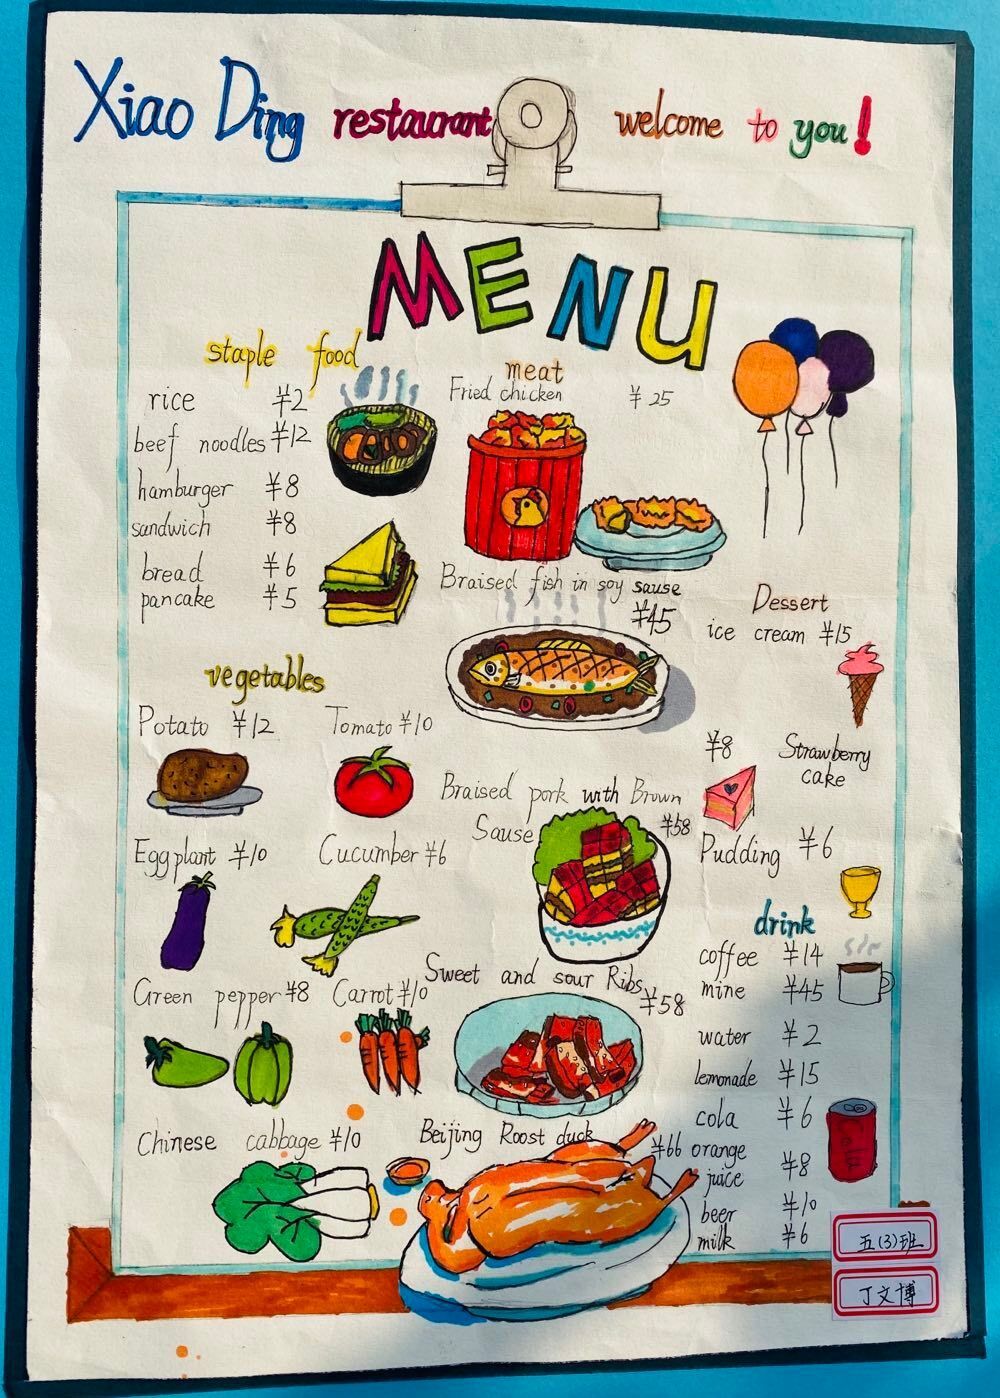 Xiao Ding restaurant welcome to you!
MENU
staple food
rice ¥2
beef noodles ¥12
hamburger ¥8
sandwich ¥8
bread ¥6
pancake ¥5
vegetables
Potato ¥12 Tomato ¥10
Eggplant ¥10 Cucumber ¥6
Green pepper ¥8 Carrot ¥10
Chinese cabbage ¥10
meat
Fried chicken ¥25
Braised fish in soy sause
¥45
Braised pork with Brown
Sause ¥58
Sweet and sour Ribs
¥58
Beijing Roost duck ¥66
Dessert
ice cream ¥15
¥8 Strawberry
cake
Pudding ¥6
drink
coffee ¥14
mine ¥45
water ¥2
lemonade ¥15
cola ¥6
Cola
orange
juice ¥8
beer ¥10
milk ¥6
五(3)班
丁文博